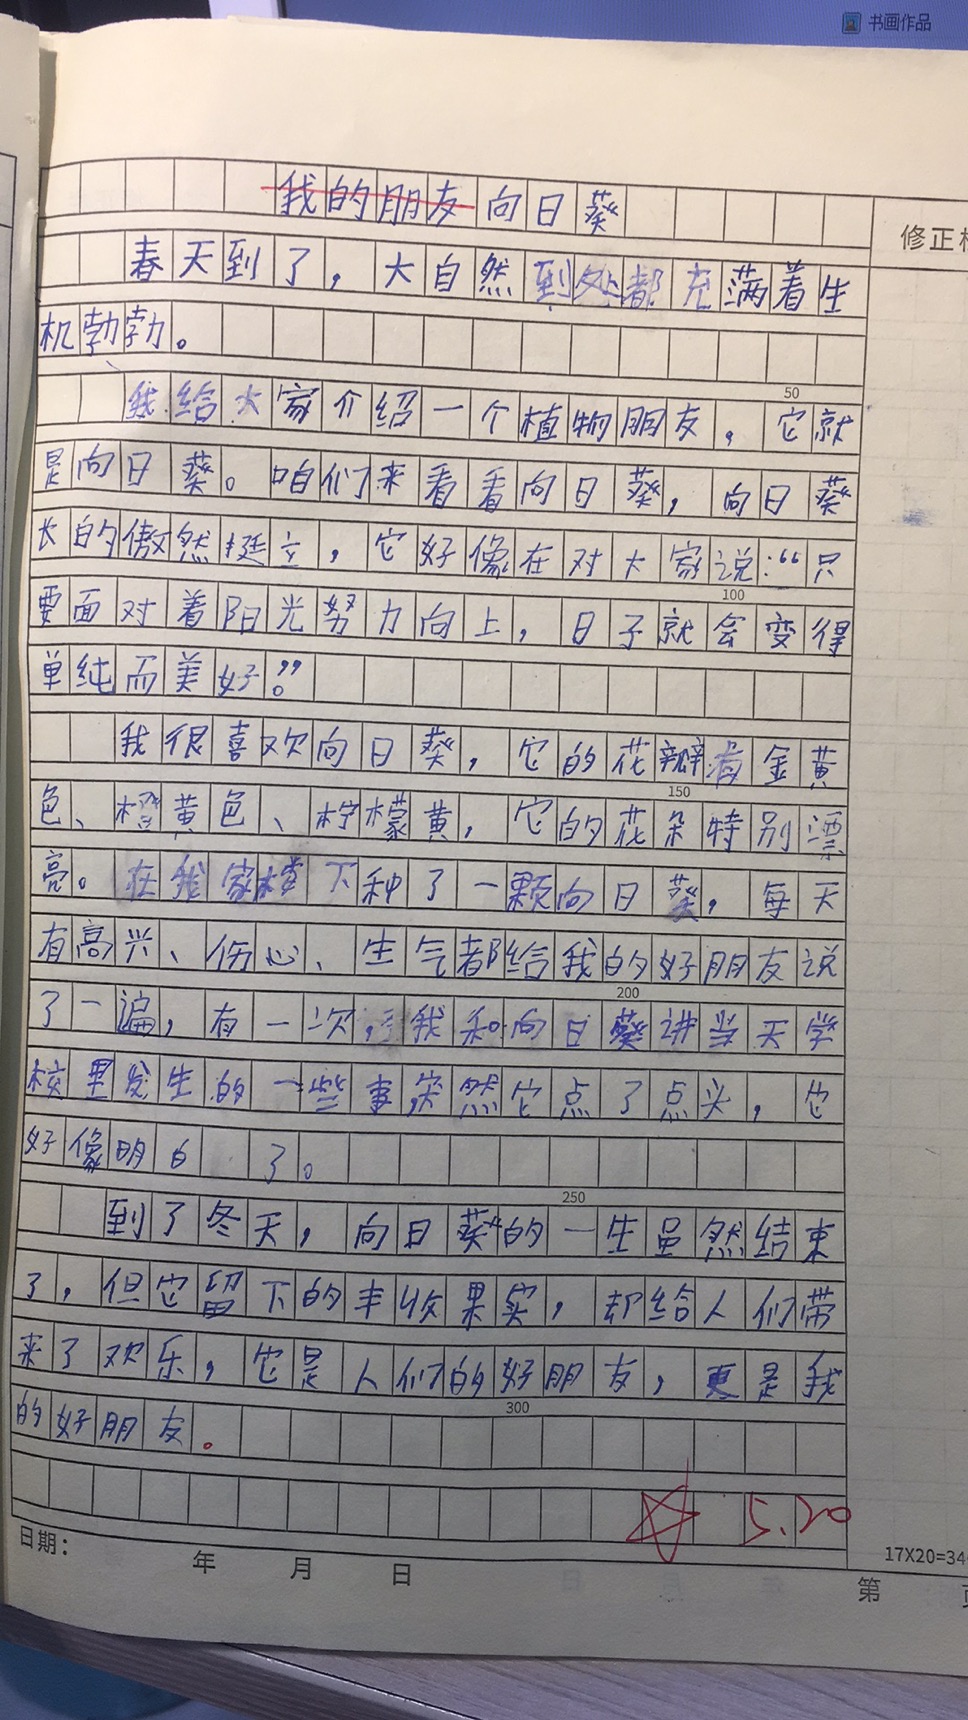 书画作品
我的朋友向日葵
修正
春天到了，大自然到处都充满着生
机勃勃。
50
我给大家介绍一个植物朋友，它就
是向日葵。咱们来看看向日葵，向日葵
长的傲然挺立，它好像在对大家说：“只
100
要面对着阳光努力向上，日子就会变得
单纯而美好。”
我很喜欢向日葵，它的花瓣有金黄
150
色、橙黄色、柠檬黄，它的花朵特别漂
亮。在我家楼下种了一颗向日葵，每天
有高兴、伤心、生气都给我的好朋友说
200
了一遍，有一次，我和向日葵讲当天学
校里发生的一些事，突然它点了点头，它
好像明白了。
250
到了冬天，向日葵的一生虽然结束
了，但它留下的丰收果实，却给人们带
来了欢乐，它是人们的好朋友，更是我
300
的好朋友。
5.20
日期： 年 月 日
17X20=34
第